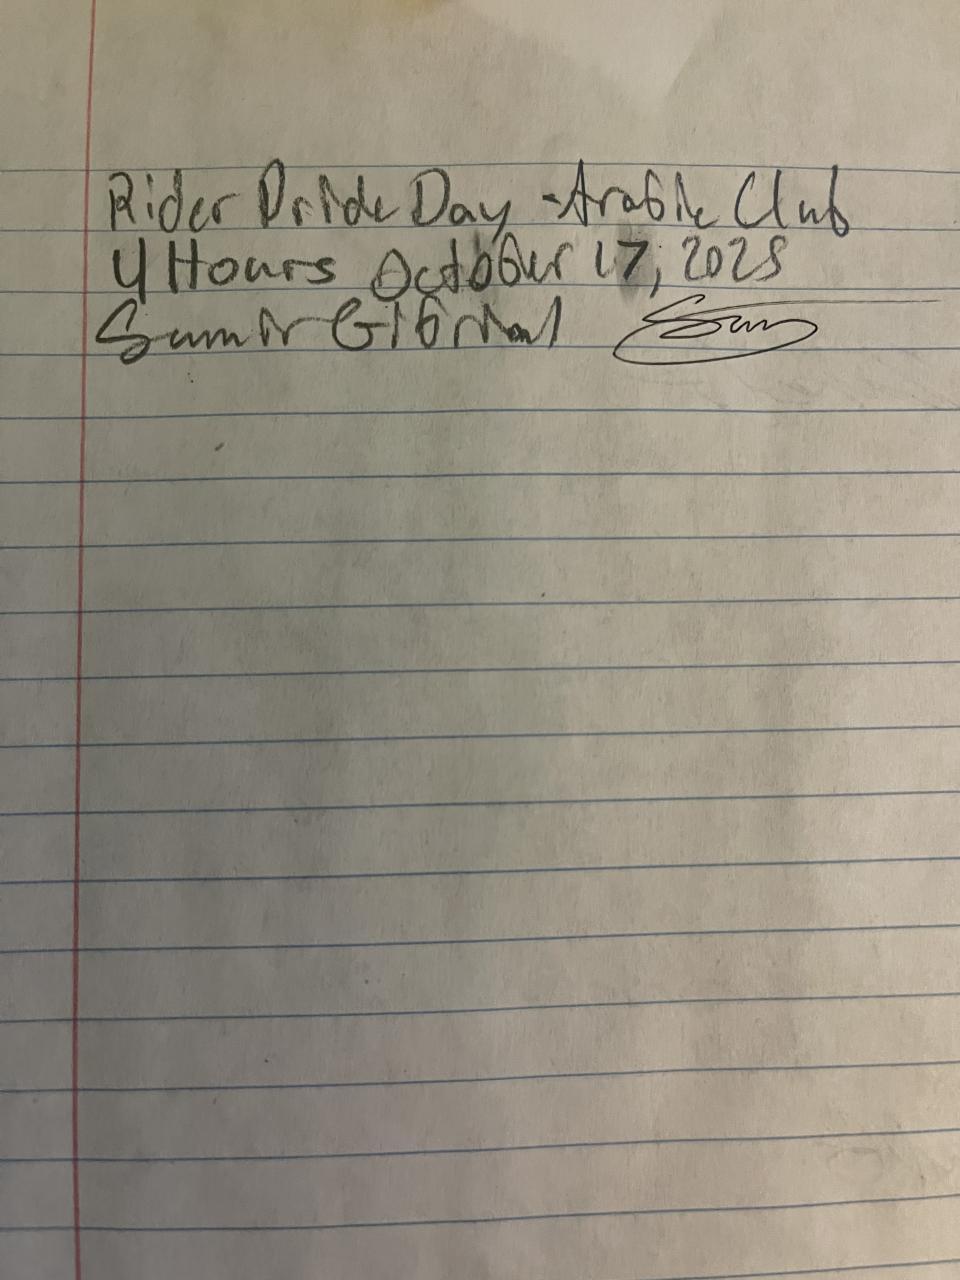 Rider Pride Day - Arabic Club
4 Hours October 17, 2025
Samir Gibrial